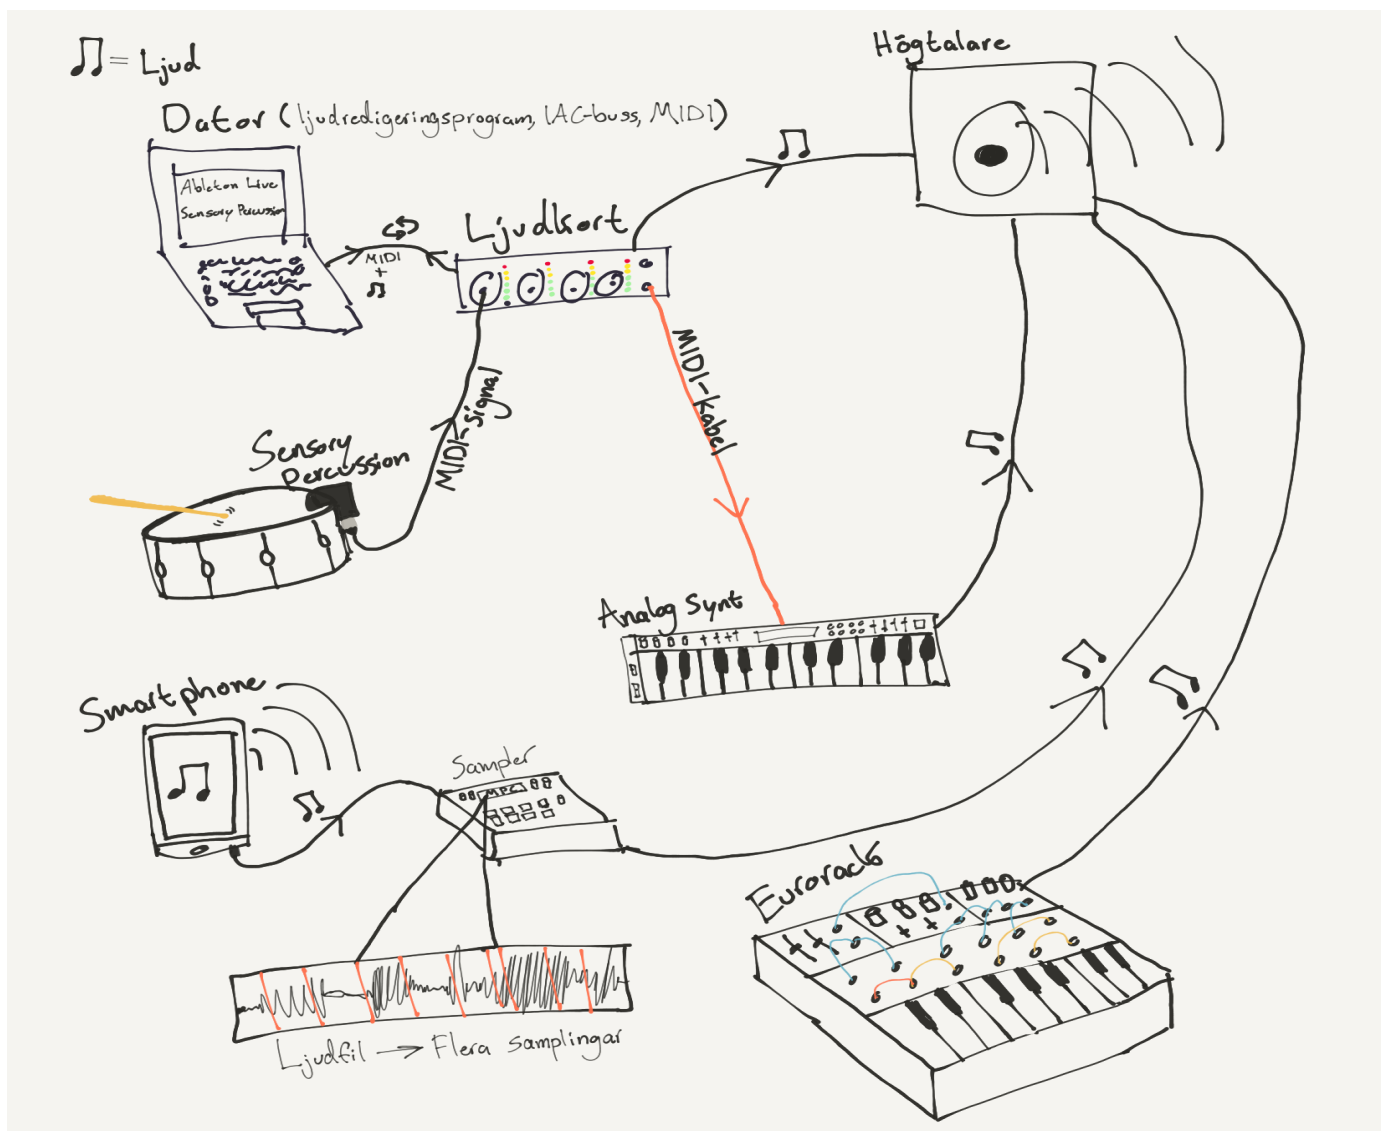 = Ljud
Högtalare
Dator (ljudredigeringsprogram, IAC-buss, MIDI)
Ableton Live
Sensory Percussion
Ljudkort
MIDI
+
MIDI-signal
MIDI-kabel
Sensory
Percussion
Analog Synt
Smartphone
Sampler
MPC
Eurorack
Ljudfil → Flera samplingar